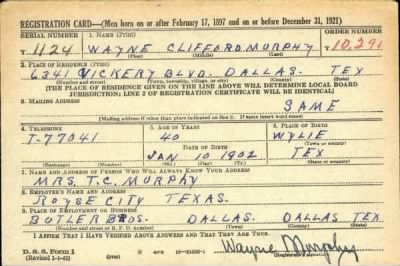 REGISTRATION CARD—(Men born on or after February 17, 1897 and on or before December 31, 1921)
SERIAL NUMBER 1. NAME (Print) ORDER NUMBER
T 1124 WAYNE CLIFFORD MURPHY T 10,291
(First) (Middle) (Last)
2. PLACE OF RESIDENCE (Print)
6341 VICKERY BLVD. DALLAS. TEX
(Number and street) (Town, township, village, or city) (County) (State)
[THE PLACE OF RESIDENCE GIVEN ON THE LINE ABOVE WILL DETERMINE LOCAL BOARD
JURISDICTION; LINE 2 OF REGISTRATION CERTIFICATE WILL BE IDENTICAL]
3. MAILING ADDRESS
SAME
[Mailing address if other than place indicated on line 2. If same insert word same]
4. TELEPHONE 5. AGE IN YEARS 6. PLACE OF BIRTH
T-77041 40 WYLIE
DATE OF BIRTH (Town or county)
JAN 10 1902 TEX
(Exchange) (Number) (Mo.) (Day) (Yr.) (State or country)
7. NAME AND ADDRESS OF PERSON WHO WILL ALWAYS KNOW YOUR ADDRESS
MRS. T.C. MURPHY
8. EMPLOYER'S NAME AND ADDRESS
ROYSE CITY TEXAS.
9. PLACE OF EMPLOYMENT OR BUSINESS
BUTLER BROS. DALLAS. DALLAS TEX
(Number and street or R. F. D. number) (Town) (County) (State)
I AFFIRM THAT I HAVE VERIFIED ABOVE ANSWERS AND THAT THEY ARE TRUE.
D. S. S. Form 1
(Revised 1-1-42) (over)
Wayne Murphy